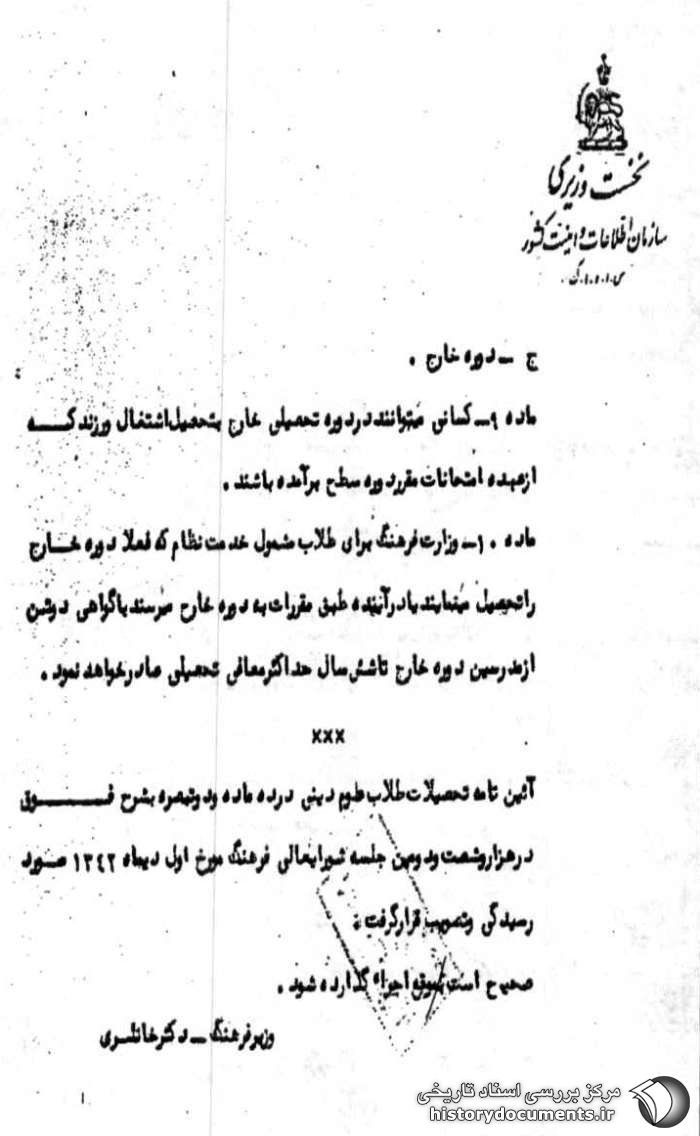 نخست وزیری
سازمان اطلاعات و امنیت کشور
س.ا.و.ا.ک.
ج ــ دوره خارج .
ماده ۹ــ کسانی میتوانند در دوره تحصیلی خارج بتحصیل اشتغال ورزند کــه
از عهده امتحانات مقرر دوره سطح برآمده باشند .
ماده ۱۰ــ وزارت فرهنگ برای طلاب مشمول خدمت نظام که فعلا دوره خــارج
را تحصیل مینمایند یا در آینده طبق مقررات به دوره خارج میرسند با گواهی دو تن
از مدرسین دوره خارج تا شش سال حداکثر معافی تحصیلی صادر خواهد نمود .
×××
آئین نامه تحصیلات طلاب علوم دینی در ده ماده و دو تبصره بشرح فـــوق
در هزار و شصت و دومین جلسه شورایعالی فرهنگ مورخ اول دیماه ۱۳۴۲ مــورد
رسیدگی و تصویب قرار گرفت .
صحیح است بموقع اجراء گذارده شود .
وزیر فرهنگ ــ دکتر خانلــری
مرکز بررسی اسناد تاریخی
historydocuments.ir